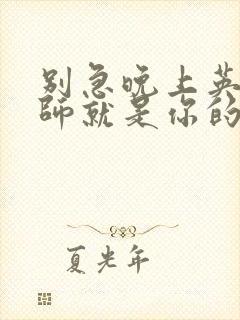 别急晚上英
师就是你的
夏光年